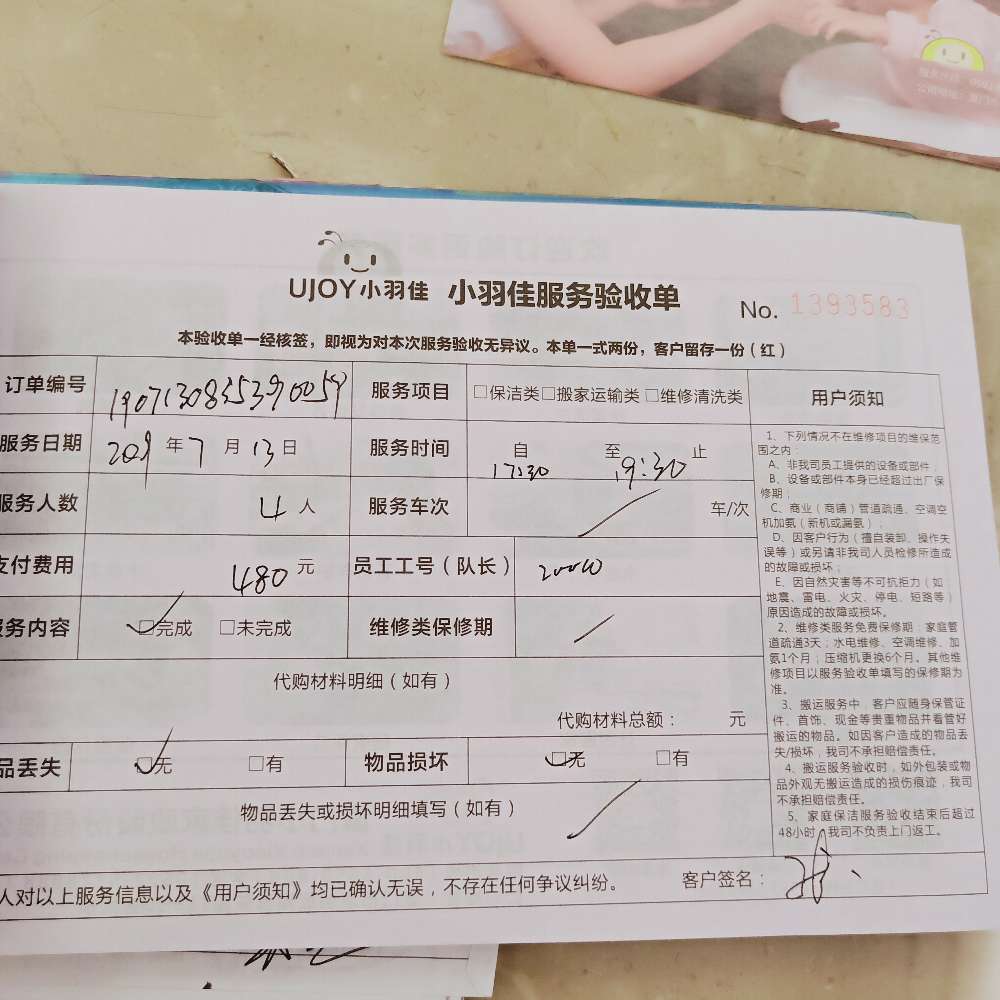 UJOY小羽佳 小羽佳服务验收单 No. 1393583
本验收单一经核签，即视为对本次服务验收无异议。本单一式两份，客户留存一份（红）
订单编号 190713083539005 服务项目 □保洁类□搬家运输类□维修清洗类 用户须知
服务日期 2019年7月13日 服务时间 自 17:30 至 19:30 止
服务人数 4人 服务车次 车/次
支付费用 480元 员工工号（队长）
服务内容 □完成 □未完成 维修类保修期
代购材料明细（如有）
代购材料总额： 元
品丢失 □无 □有 物品损坏 □无 □有
物品丢失或损坏明细填写（如有）
人对以上服务信息以及《用户须知》均已确认无误，不存在任何争议纠纷。 客户签名：
1、下列情况不在维修项目的维保范
围之内：
A、非我司员工提供的设备或部件；
B、设备或部件本身已经超过出厂保
修期；
C、商业（商铺）管道疏通、空调空
机加氨（新机或漏氨）；
D、因客户行为（擅自装卸、操作失
误等）或另请非我司人员检修所造成
的故障或损坏；
E、因自然灾害等不可抗拒力（如
地震、雷电、火灾、停电、短路等）
原因造成的故障或损坏。
2、维修类服务免费保修期：家庭管
道疏通3天；水电维修、空调维修、加
氨1个月；压缩机更换6个月。其他维
修项目以服务验收单填写的保修期为
准。
3、搬运服务中，客户应随身保管证
件、首饰、现金等贵重物品并看管好
搬运的物品。如因客户造成的物品丢
失/损坏，我司不承担赔偿责任。
4、搬运服务验收时，如外包装或物
品外观无搬运造成的损伤痕迹，我司
不承担赔偿责任。
5、家庭保洁服务验收结束后超过
48小时，我司不负责上门返工。